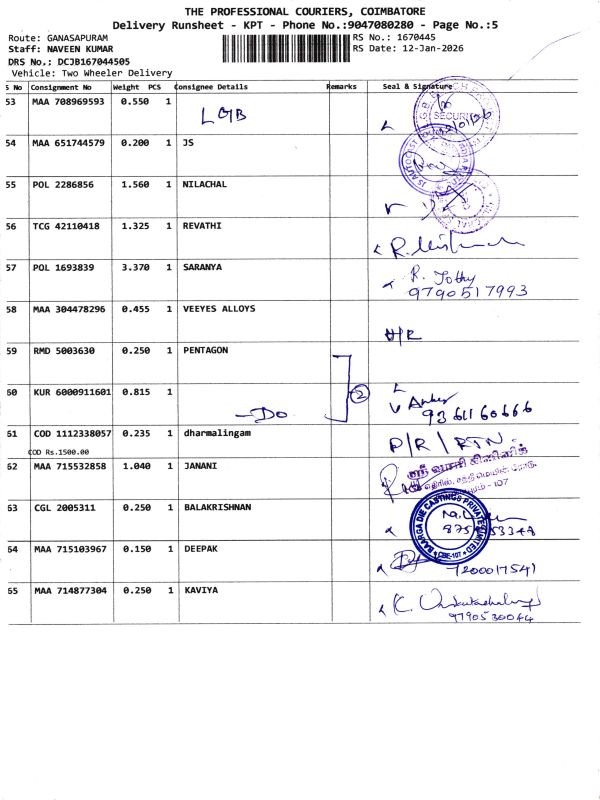 THE PROFESSIONAL COURIERS, COIMBATORE
Delivery Runsheet - KPT - Phone No.:9047080280 - Page No.:5
Route: GANASAPURAM RS No.: 1670445
Staff: NAVEEN KUMAR RS Date: 12-Jan-2026
DRS No.: DCJB167044505
Vehicle: Two Wheeler Delivery
S No Consignment No Weight PCS Consignee Details Remarks Seal & Signature
53 MAA 708969593 0.550 1 LGB
SECURITY
54 MAA 651744579 0.200 1 JS
55 POL 2286856 1.560 1 NILACHAL
56 TCG 42110418 1.325 1 REVATHI
57 POL 1693839 3.370 1 SARANYA R. Jothy
9790517993
58 MAA 304478296 0.455 1 VEEYES ALLOYS H/R
59 RMD 5003630 0.250 1 PENTAGON
60 KUR 6000911601 0.815 1 -Do 2
9361160666
61 COD 1112338057 0.235 1 dharmalingam P/R/RTN
COD Rs.1500.00
62 MAA 715532858 1.040 1 JANANI
- 107
63 CGL 2005311 0.250 1 BALAKRISHNAN
BAARGA DIE CASTINGS PRIVATE LIMITED
CBE-107
64 MAA 715103967 0.150 1 DEEPAK
7200017541
65 MAA 714877304 0.250 1 KAVIYA
9790530044